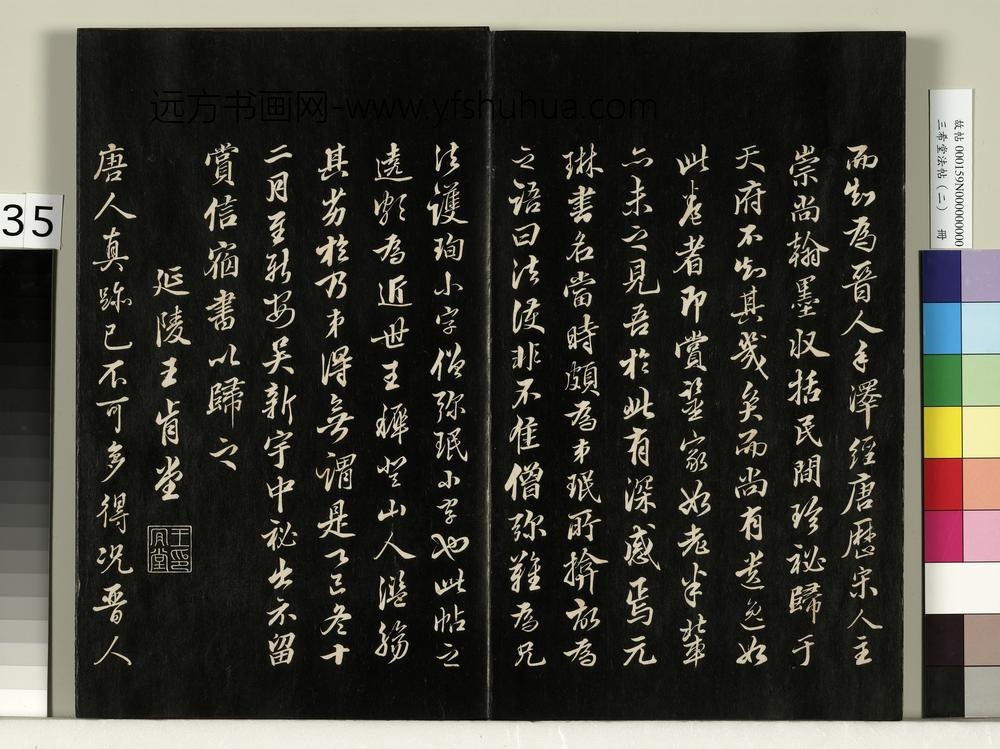 而知為晉人手澤經唐歷宋人主
崇尚翰墨收括民間珍祕歸于
天府不知其幾矣而尚有遺逸如
此卷者即賞鑒家如老米輩
亦未之見吾於此有深感焉元
琳書名當時頗為弟珉所揜故為
之語曰法護非不佳僧彌難為兄
法護珣小字僧彌珉小字也此帖之
遶宛為近世王穉登山人濫觴
其劣於乃弟得無謂是乙巳冬十
二月至新安吳新宇中祕出不留
賞信宿書以歸之
延陵王肯堂
王肯堂印
唐人真跡已不可多得況晉人
远方书画网-www.yfshuhua.com
35
故帖 000159N000000000
三希堂法帖（二） 冊